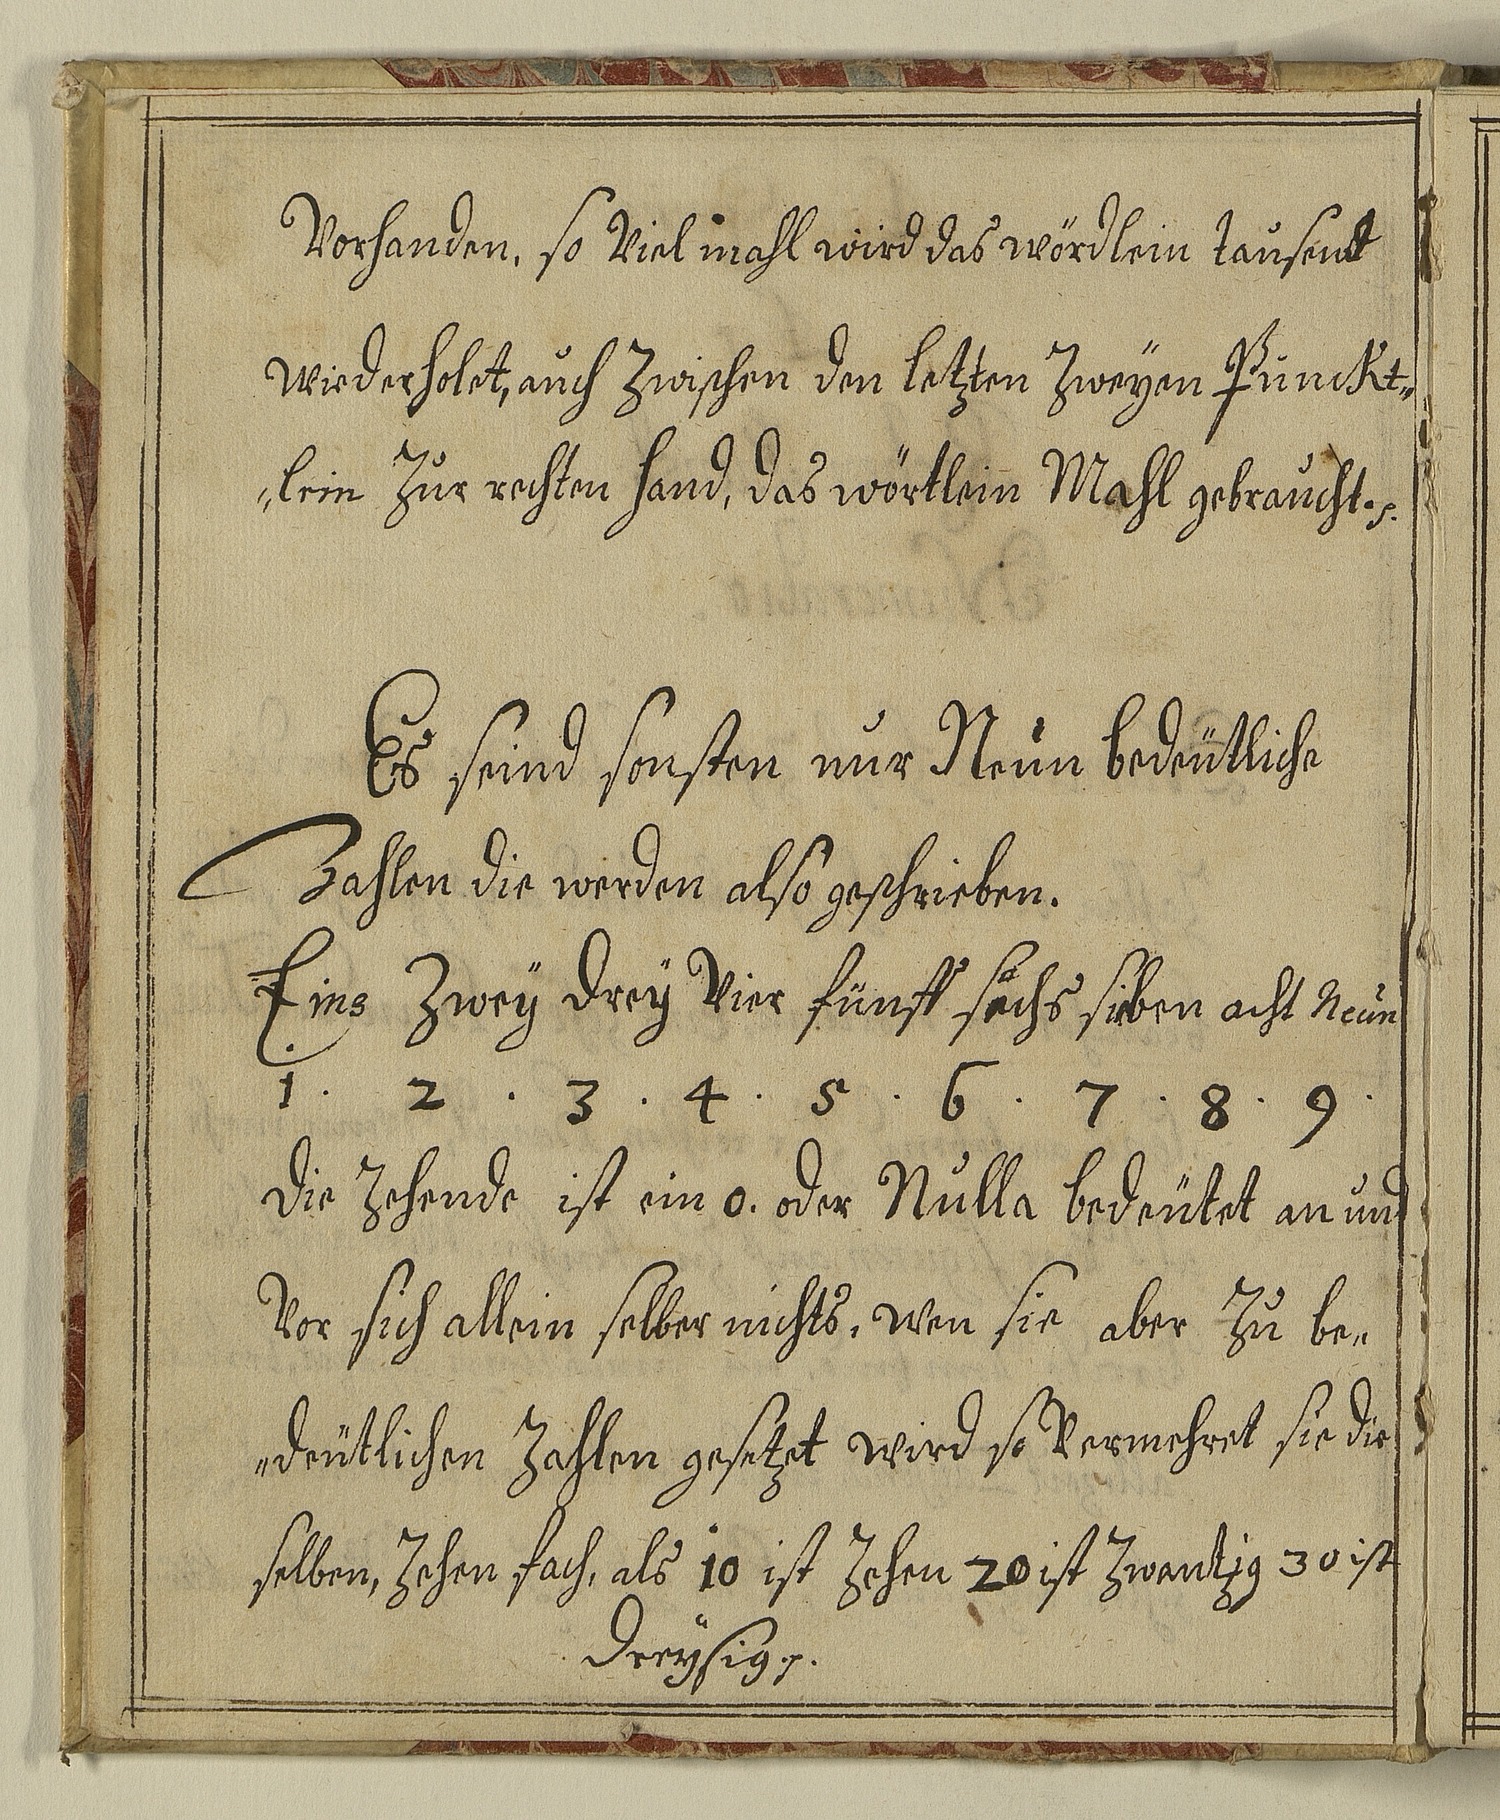 Vorhanden, so Viel mahl wird das wördlein tausent
wiederholet, auch Zwischen den letzten Zweÿen Punckt„
„lein Zur rechten hand, das wörtlein Mahl gebraucht.
Es seind sonsten nur Neun bedeütliche
Zahlen die werden also geschrieben.
Eins Zweÿ dreÿ Vier fünff sechs sieben acht Neun
1 . 2 . 3 . 4 . 5 . 6 . 7 . 8 . 9 .
die Zehende ist ein 0. oder Nulla bedeütet an und
Vor sich allein selber nichts, wen sie aber Zu be„
„deütlichen Zahlen gesetzet wird so Vermehret sie die
selben, Zehen fach, als 10 ist Zehen 20 ist Zwantzig 30 ist
dreÿsig.